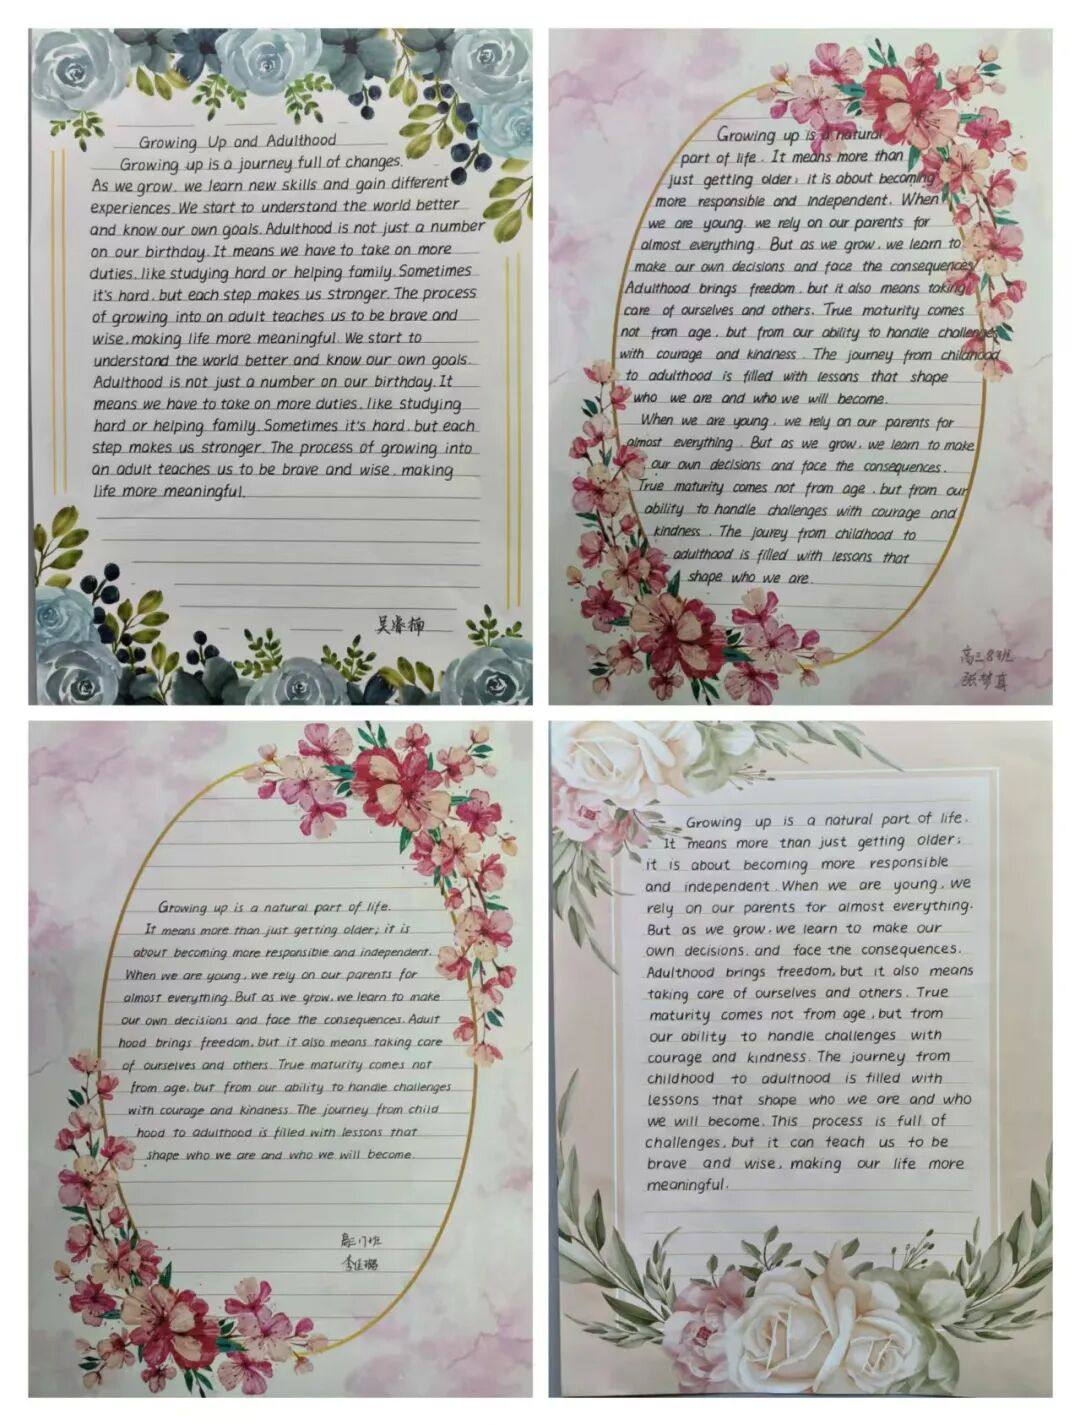 Growing Up and Adulthood
Growing up is a journey full of changes.
As we grow, we learn new skills and gain different
experiences. We start to understand the world better
and know our own goals. Adulthood is not just a number
on our birthday. It means we have to take on more
duties, like studying hard or helping family. Sometimes
it's hard, but each step makes us stronger. The process
of growing into an adult teaches us to be brave and
wise, making life more meaningful. We start to
understand the world better and know our own goals.
Adulthood is not just a number on our birthday. It
means we have to take on more duties, like studying
hard or helping family. Sometimes it's hard, but each
step makes us stronger. The process of growing into
an adult teaches us to be brave and wise, making
life more meaningful.
吴睿楠
Growing up is a natural
part of life. It means more than
just getting older; it is about becoming
more responsible and independent. When
we are young, we rely on our parents for
almost everything. But as we grow, we learn to
make our own decisions and face the consequences.
Adulthood brings freedom, but it also means taking
care of ourselves and others. True maturity comes
not from age, but from our ability to handle challenges
with courage and kindness. The journey from childhood
to adulthood is filled with lessons that shape
who we are and who we will become.
When we are young, we rely on our parents for
almost everything. But as we grow, we learn to make
our own decisions and face the consequences.
True maturity comes not from age, but from our
ability to handle challenges with courage and
kindness. The jourey from childhood to
adulthood is filled with lessons that
shape who we are.
高三8班
张梦真
Growing up is a natural part of life.
It means more than just getting older; it is
about becoming more responsible and independent.
When we are young, we rely on our parents for
almost everything. But as we grow, we learn to make
our own decisions and face the consequences. Adult
hood brings freedom, but it also means taking care
of ourselves and others. True maturity comes not
from age, but from our ability to handle challenges
with courage and kindness. The journey from child
hood to adulthood is filled with lessons that
shape who we are and who we will become.
高三17班
李佳璐
Growing up is a natural part of life.
It means more than just getting older;
it is about becoming more responsible
and independent. When we are young, we
rely on our parents for almost everything.
But as we grow, we learn to make our
own decisions, and face the consequences.
Adulthood brings freedom, but it also means
taking care of ourselves and others. True
maturity comes not from age, but from
our ability to handle challenges with
courage and kindness. The journey from
childhood to adulthood is filled with
lessons that shape who we are and who
we will become. This process is full of
challenges, but it can teach us to be
brave and wise, making our life more
meaningful.